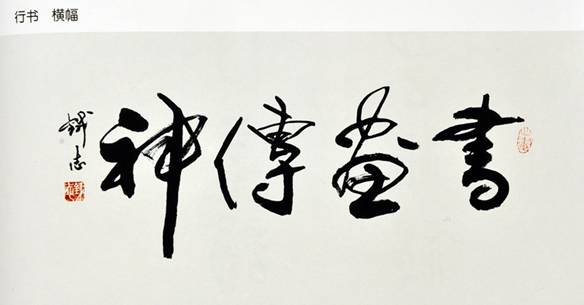 行书 横幅
書畫傳神
铁志